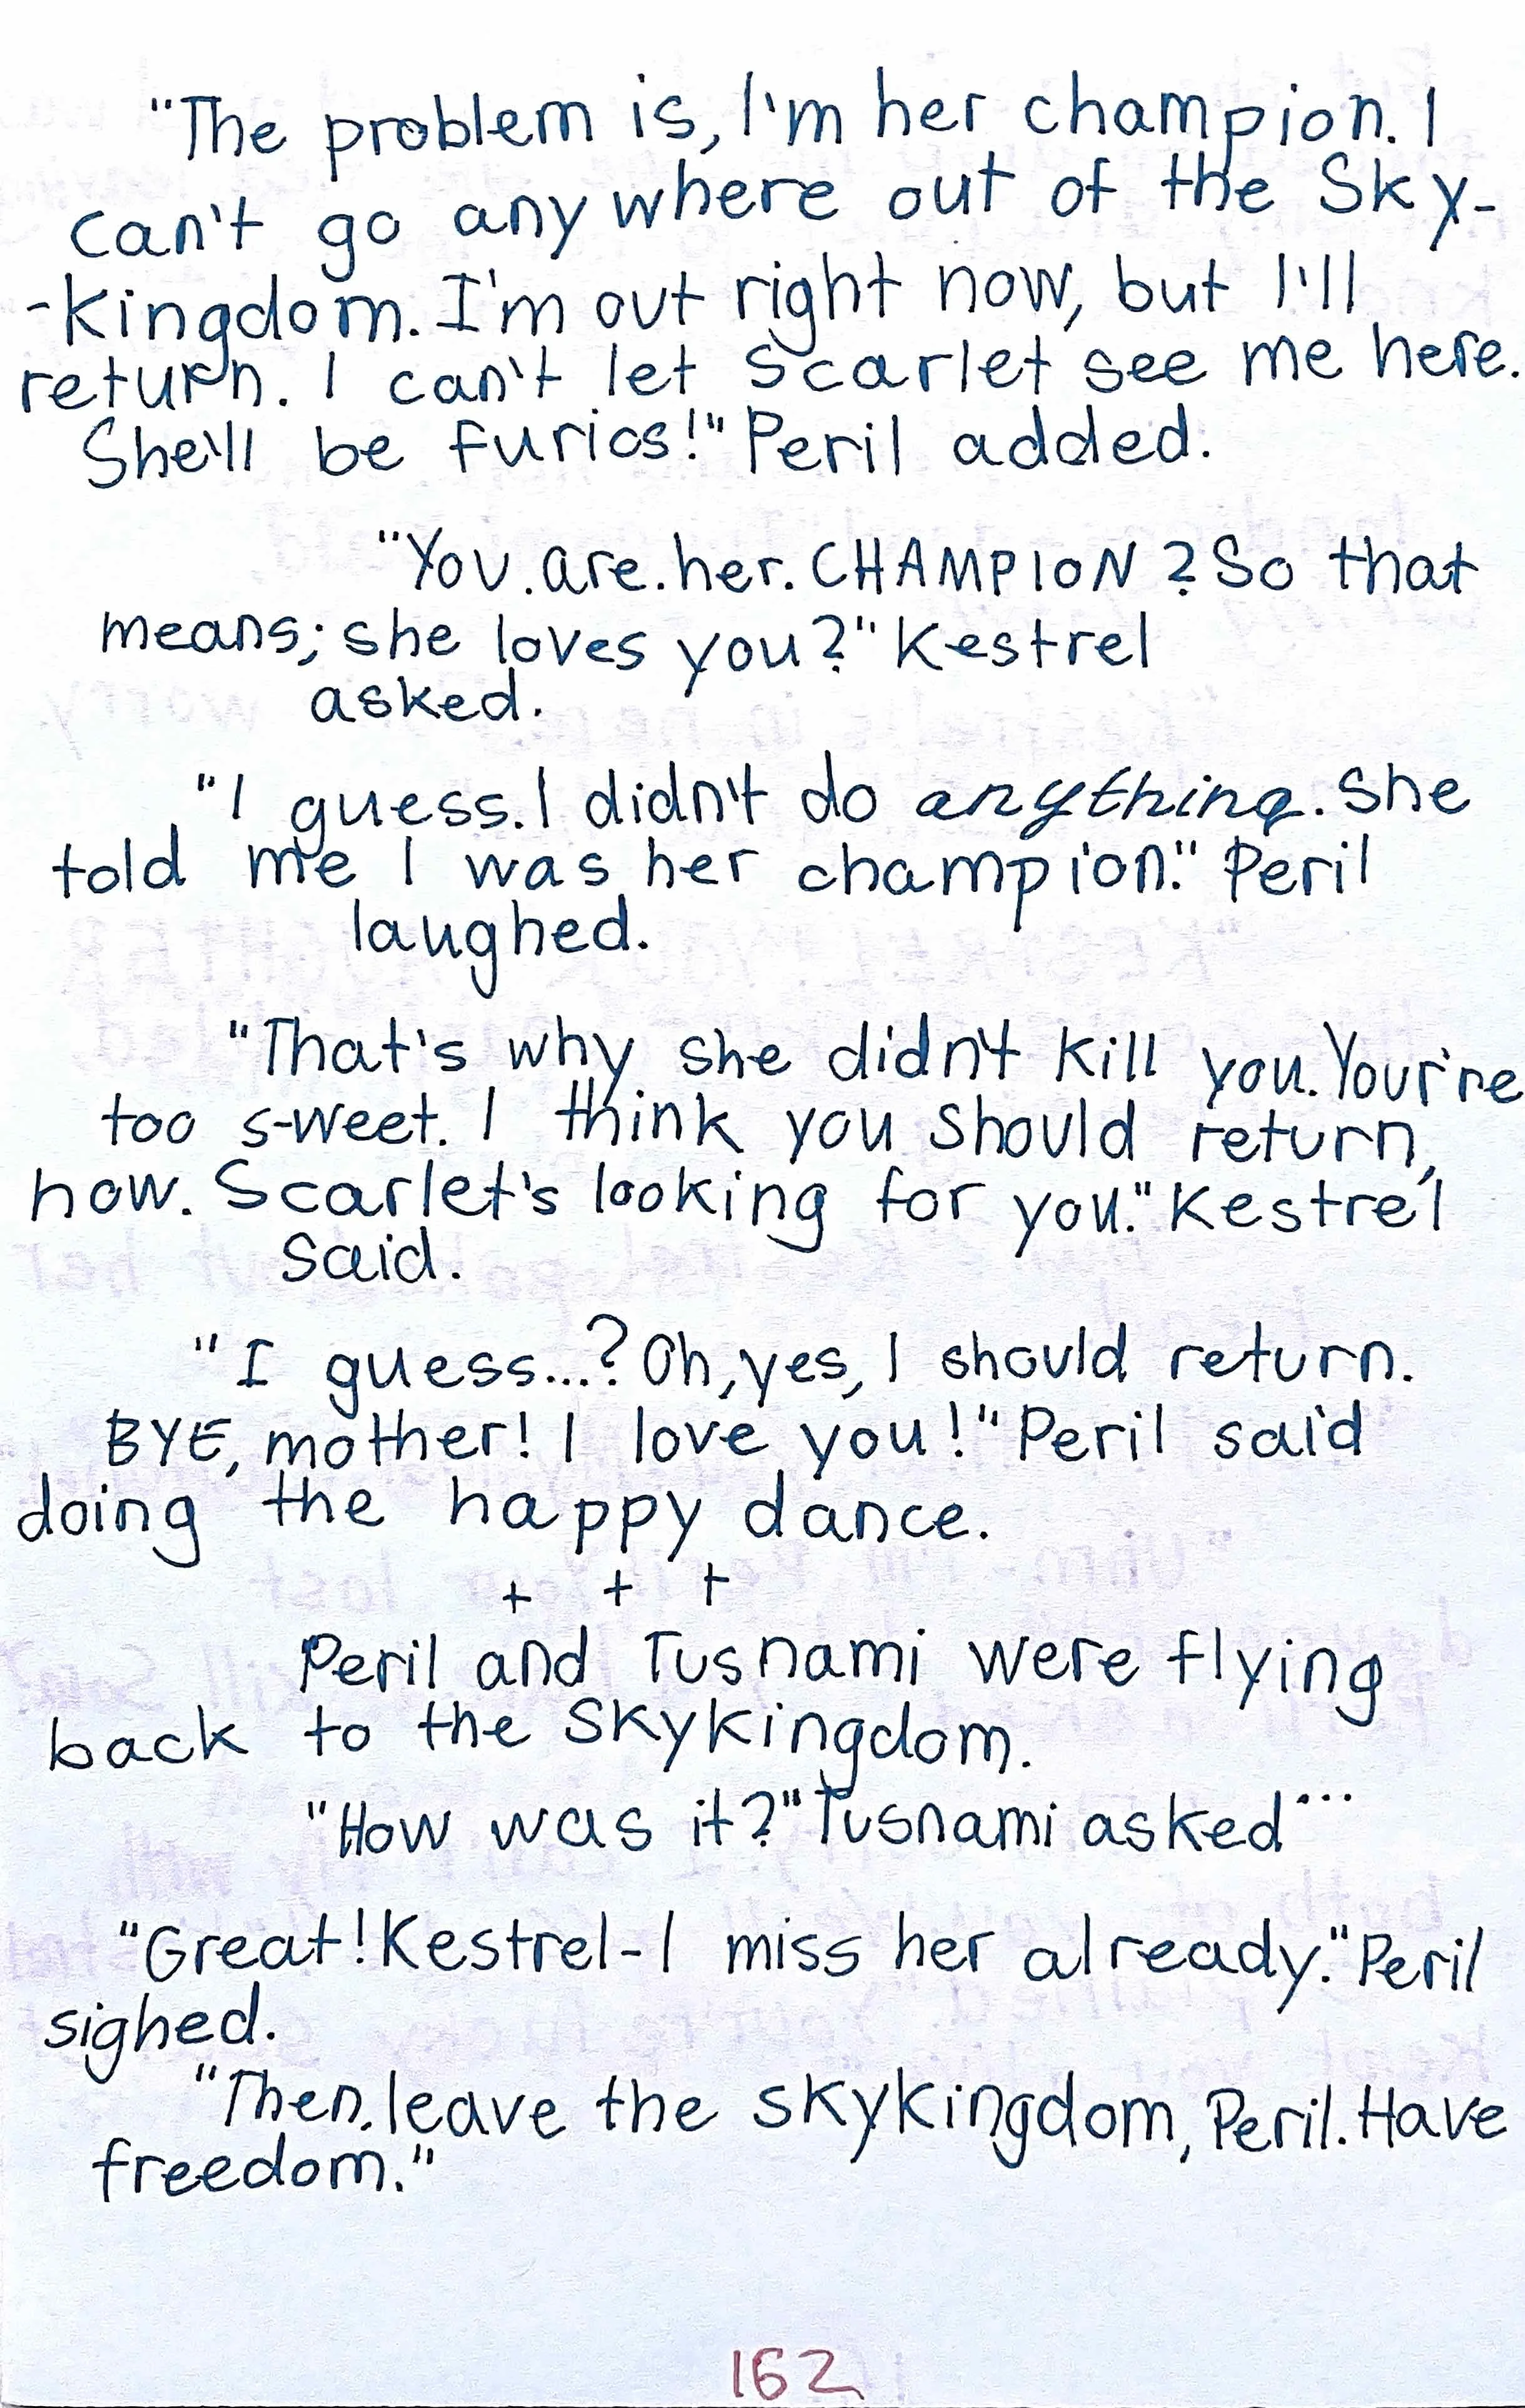 "The problem is, I'm her champion. I
can't go anywhere out of the Sky-
-kingdom. I'm out right now, but I'll
return. I can't let Scarlet see me here.
She'll be furios!" Peril added.
"You.are.her.CHAMPION? So that
means; she loves you?" Kestrel
asked.
"I guess. I didn't do anything. She
told me I was her champion." Peril
laughed.
"That's why she didn't kill you. Your're
too sweet. I think you should return,
now. Scarlet's looking for you." Kestrel
said.
"I guess...? Oh, yes, I should return.
BYE, mother! I love you!" Peril said
doing the happy dance.
+ + +
Peril and Tusnami were flying
back to the Skykingdom.
"How was it?" Tusnami asked...
"Great! Kestrel-I miss her already." Peril
sighed.
"Then, leave the skykingdom, Peril. Have
freedom."
162